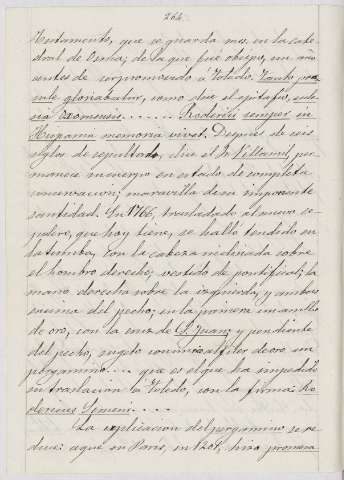 264.
Testamento, que se guarda ms. en la cate-
dral de Osma; de la que fué obispo, un año
antes de ser promovido a Toledo. Tanto prae-
sule gloriabatur, como dice el epitafio, eccle-
sia Oxomensis . . . . . . . Roderici semper in
Hispania memoria vivet. Despues de seis
siglos de sepultado, dice el Sr. Villamil, per-
manece su cuerpo en estado de completa
conservacion; maravilla de su imponente
santidad. En 1766, trasladado al nuevo se-
pulcro, que hoy tiene, se halló tendido en
la tumba, con la cabeza inclinada sobre
el hombro derecho; vestido de pontifical; la
mano derecha sobre la izquierda, y ambas
encima del pecho; en la primera un anillo
de oro, con la cruz de S. Juan; y pendiente
del pecho, sugeto con un alfiler de oro un
pergamino . . . que es el que ha impedido
su traslacion a Toledo, con la firma: Ro-
dericus Semeni . . . . .
La esplicacion del pergamino, se re-
duce: a que en Paris, en 1201, hizo promesa